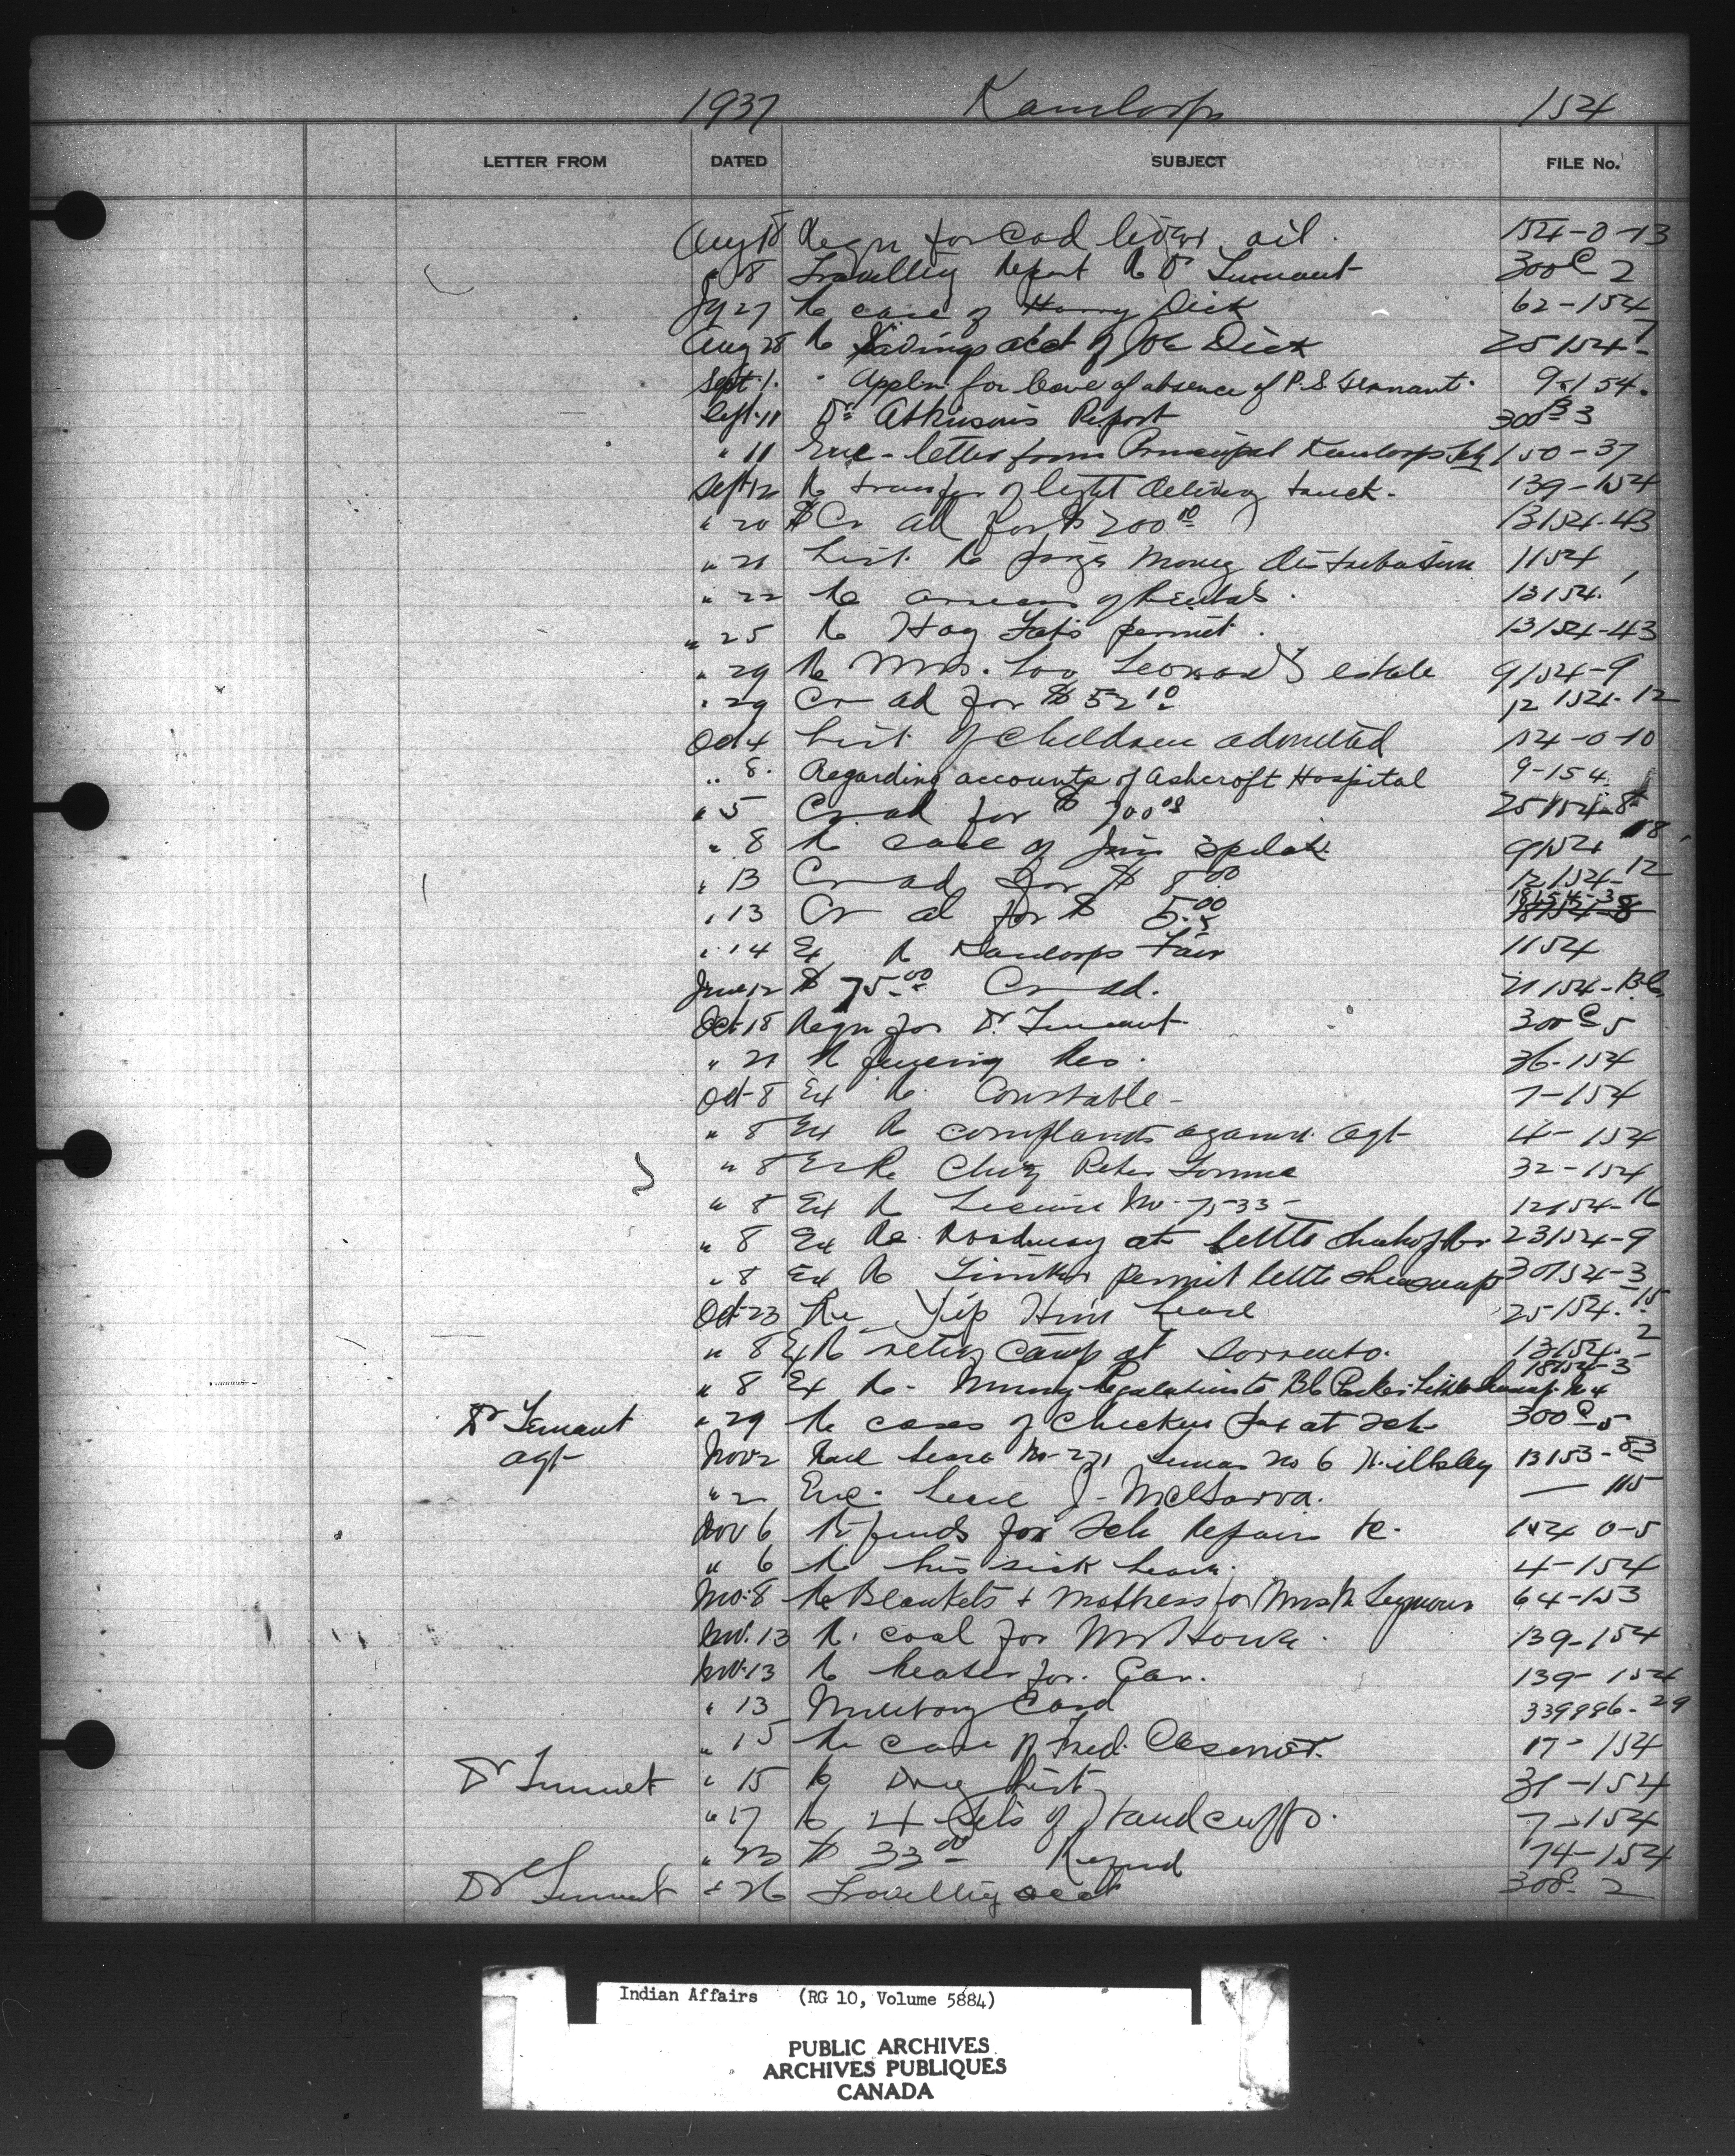 1937 Kamloops 154
LETTER FROM DATED SUBJECT FILE No.
Aug 18 Reqn for Cod liver oil. 154-0-13
" 8 Travelling Report Re Dr Tennant 300 C 2
Jy 27 Re case of Harry Dick 62-154
Aug 28 Re Savings acct of Joe Dick 25154-7
Sept 1. " Appln. for leave of absence of P.S. Tennant. 9-154.
Sept. 11 Dr Atkinson's Report 300 B 3
" 11 Enc - letter from Principal Kamloops Sch 150-37
Sept 12 Re transfer of light delivery truck. 139-154
" 20 Cr ad for $200 10 13154-43
" 21 List Re prize money distribution 1154
" 22 Re arrears of Rentals. 13154.
" 25 Re Hog permit. 13154-43
" 29 Re Mrs. Leonard's estate 9154-9
" 29 Cr ad for $52 10 12154-12
Oct 4 List of children admitted 154-0-10
" 8. Regarding accounts of Ashcroft Hospital 9-154
" 5 Cr ad for $ 700 25154-8
" 8 Re case of Jim 9154 18
" 13 Cr ad for $ 8.00 12154-12
" 13 Cr ad for $ 5.00 18154-3
" 14 Ex Re Kamloops Fair 1154
June 12 $ 75.00 Cr ad. 21154-B.C.
Oct 18 Reqn for Dr. Tennant 300 C 5
" 21 Re fencing Res. 36-154
Oct 8 Ex Re Constable - 7-154
" 8 Ex Re complaints against Agt 4-154
" 8 Ex Re Chief Peter Tomma 32-154
" 8 Ex Re License No. 7533 - 12154-16
" 8 Ex Re. Roadway at little 23154-9
" 8 Ex Re Timber permit little Shuswap 30154-3
Oct 23 Re Yip Him Lease 25154.-15
" 8 Ex Re camp at Sorrento. 13154.-2
" 8 Ex Re - Mining Regulations BC 18154-3
Dr Tennant " 29 Re cases of Chicken Pox at Sch 300 C 5
Agt Nov 2 Lease No 271 no 6 13153-83
" 2 Enc. Lease J- — 115
Nov 6 Re funds for Sch Repairs &c. 154 0-5
" 6 Re his sick leave. 4-154
Nov. 8 Re Blankets + Mattress for Mrs Seymour 64-153
Nov. 13 Re coal for Mr 139-154
Nov. 13 Re heater for Car. 139-154
" 13 Military Card 339996-29
" 15 Re case of Fred. 17-154
Dr Tennant " 15 Re Drug List 31-154
" 17 Re 4 Sets of Handcuffs. 7-154
" 23 $ 33 00 Refund 74-154
Dr Tennant " 26 Travelling acct 300 2
Indian Affairs (RG 10, Volume 5884)
PUBLIC ARCHIVES
ARCHIVES PUBLIQUES
CANADA